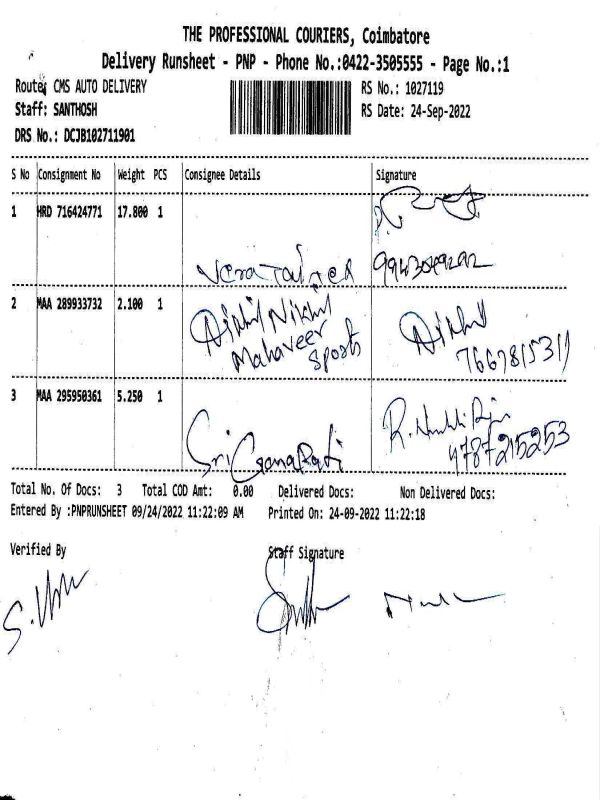 THE PROFESSIONAL COURIERS, Coimbatore
Delivery Runsheet - PNP - Phone No.:0422-3505555 - Page No.:1
Route: CMS AUTO DELIVERY
RS No.: 1027119
Staff: SANTHOSH
RS Date: 24-Sep-2022
DRS No.: DCJB102711901
S No Consignment No Weight PCS Consignee Details Signature
1 HRD 716424771 17.800 1
2 MAA 289933732 2.100 1
Nikhil
Mahaveer
Sports
Nikhil
3 MAA 295950361 5.250 1
Sri
4787215253
Total No. Of Docs: 3 Total COD Amt: 0.00 Delivered Docs: Non Delivered Docs:
Entered By :PNPRUNSHEET 09/24/2022 11:22:09 AM Printed On: 24-09-2022 11:22:18
Verified By Staff Signature